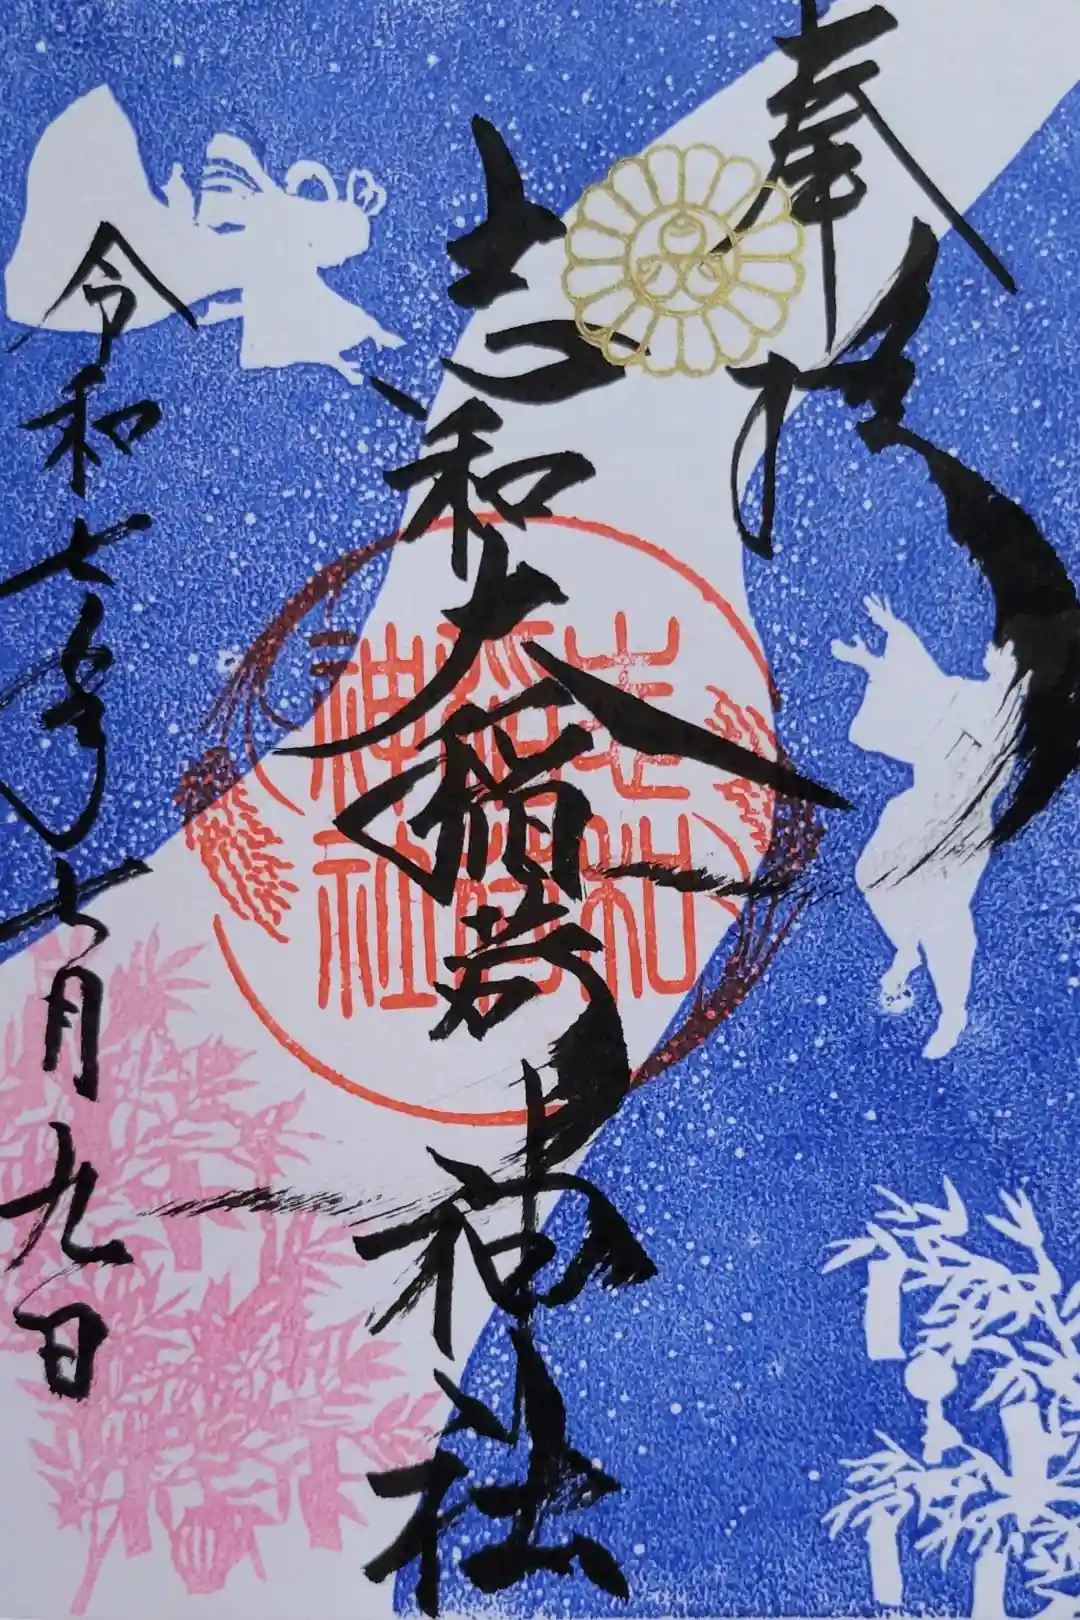 奉拝
志和大稲荷神社
志和
稲荷
神社
令和七年七月九日